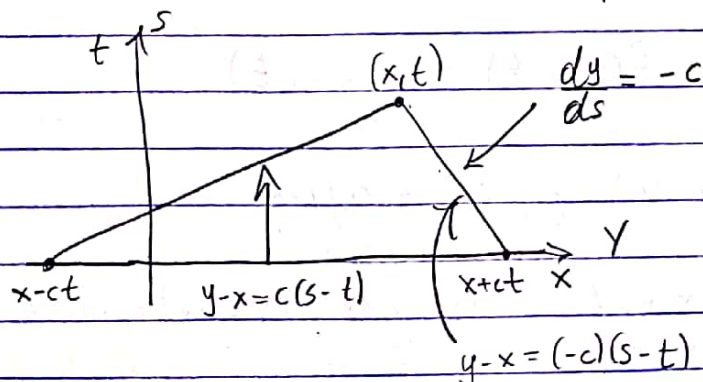 t s
(x,t)
dy/ds = -c
Y
x-ct y-x=c(s-t) x+ct x
y-x=(-c)(s-t)